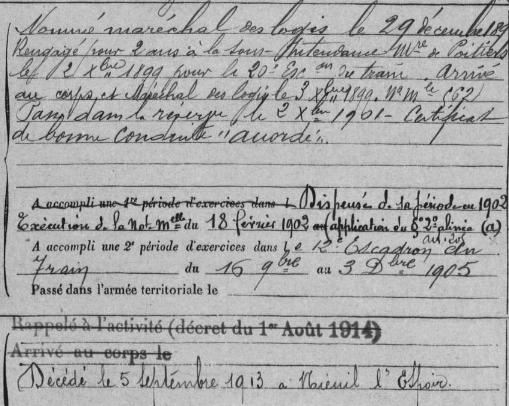 Nommé maréchal des logis le 29 décembre 189
Rengagé pour 2 ans à la sous-Intendance Mre de Poitiers
le 2 Xbre 1899 pour le 20e Escon du train. Arrivé
au corps et Maréchal des logis le 3 Xbre 1899. No Mle (67)
Passé dans la réserve le 2 Xbre 1901 - Certificat
de bonne conduite "accordé".
A accompli une 1re période d'exercices dans l Dispensé de la période en 1902
Exécution de la Not. Melle du 18 février 1902 au application du § 2o alinéa (a)
A accompli une 2e période d'exercices dans le 12e Escadron du
Train du 16 9bre au 3 Dbre 1905
Passé dans l'armée territoriale le
Rappelé à l'activité (décret du 1er Août 1914)
Arrivé au corps le
Décédé le 5 septembre 1913 à Nieuil l'Espoir.